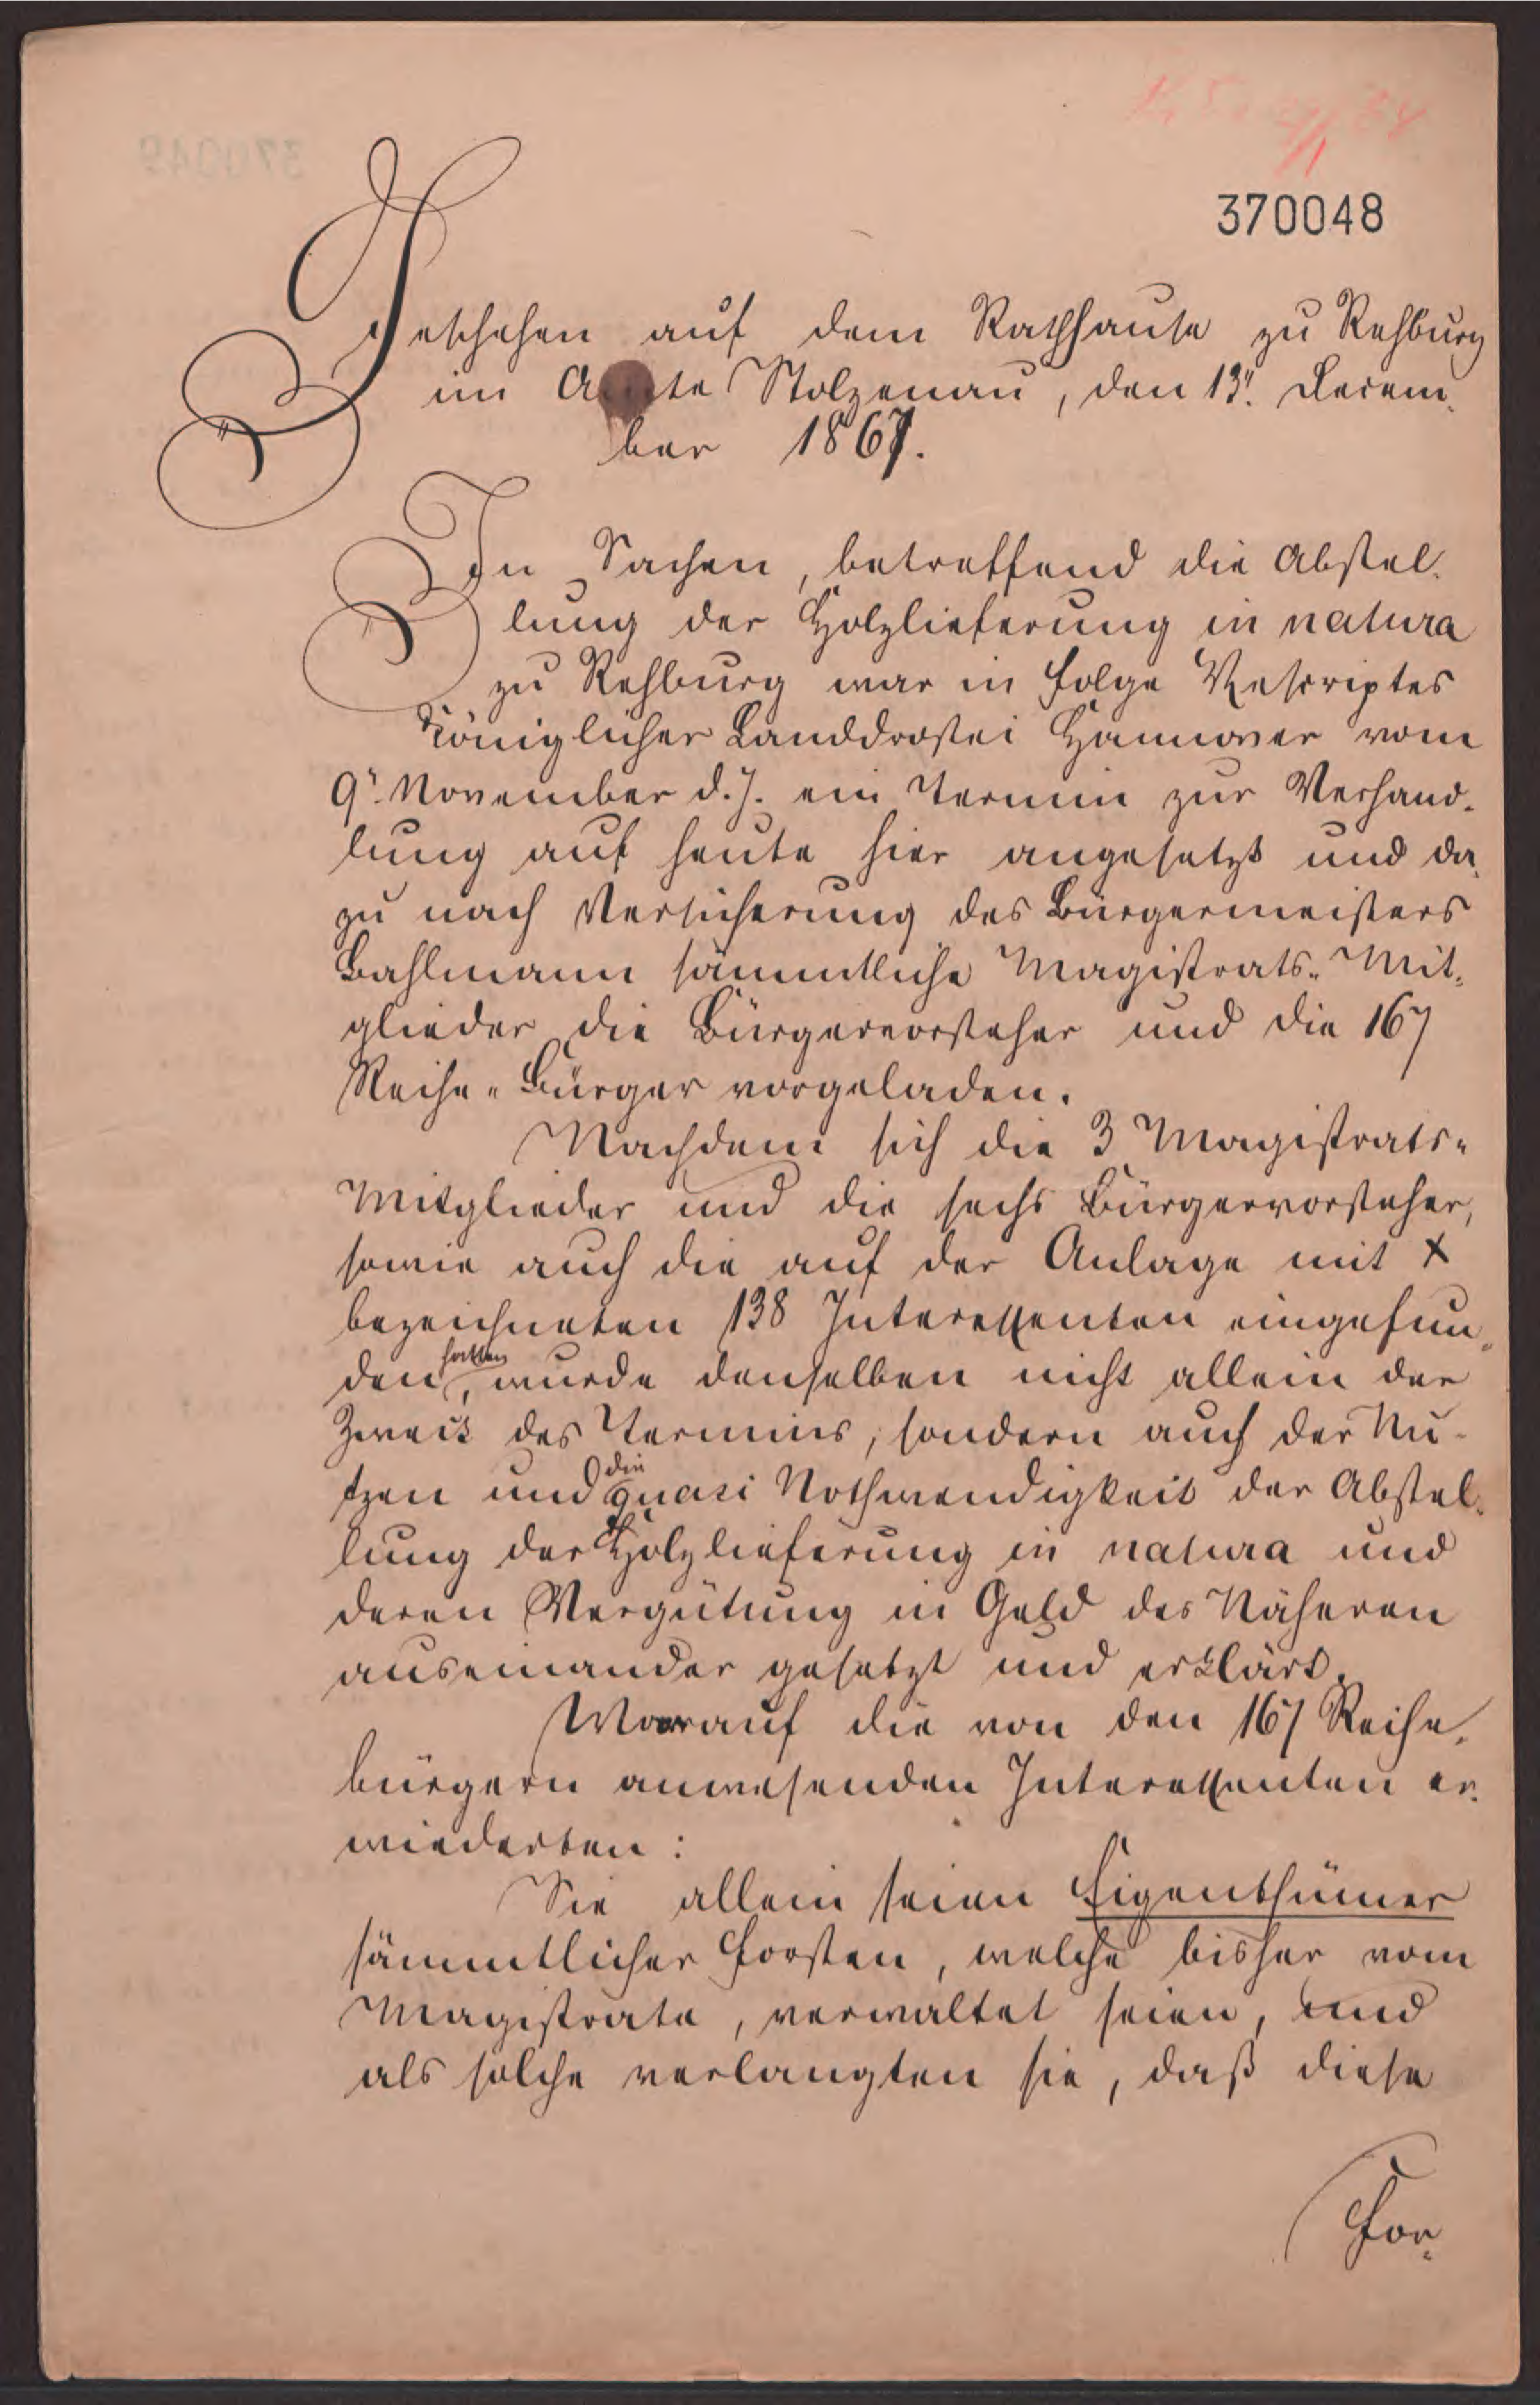 370048
Geschehen auf dem Rathhause zu Rehburg
im Amte Stolzenau, den 13t. Decem-
ber 1867.
In Sachen, betreffend die Abstel-
lung der Holzlieferung in natura
zu Rehburg war in Folge Rescriptes
Königlicher Landdrostei Hannover vom
9t. November d. J. ein Termin zur Verhand-
lung auf heute hier angesetzt und da-
zu nach Versicherung des Bürgermeisters
Bahlmann sämmtliche Magistrats-Mit-
glieder die Bürgervorsteher und die 167
Reihe-Bürger vorgeladen.
Nachdem sich die 3 Magistrats-
Mitglieder und die sechs Bürgervorsteher,
sowie auch die auf der Anlage mit x
bezeichneten 138 Interessenten eingefun-
den hatten, wurde denselben nicht allein der
Zweck des Termins, sondern auch der Nu-
tzen und die quasi Nothwendigkeit der Abstel-
lung der Holzlieferung in natura und
deren Vergütung in Geld des Näheren
auseinander gesetzt und erklärt.
Worauf die von den 167 Reihe-
bürgern anwesenden Interessenten er-
wiederten:
Sie allein seien Eigenthümer
sämmtlicher Forsten, welche bisher vom
Magistrate, verwaltet seien, und
als solche verlangten sie, daß diese
For-